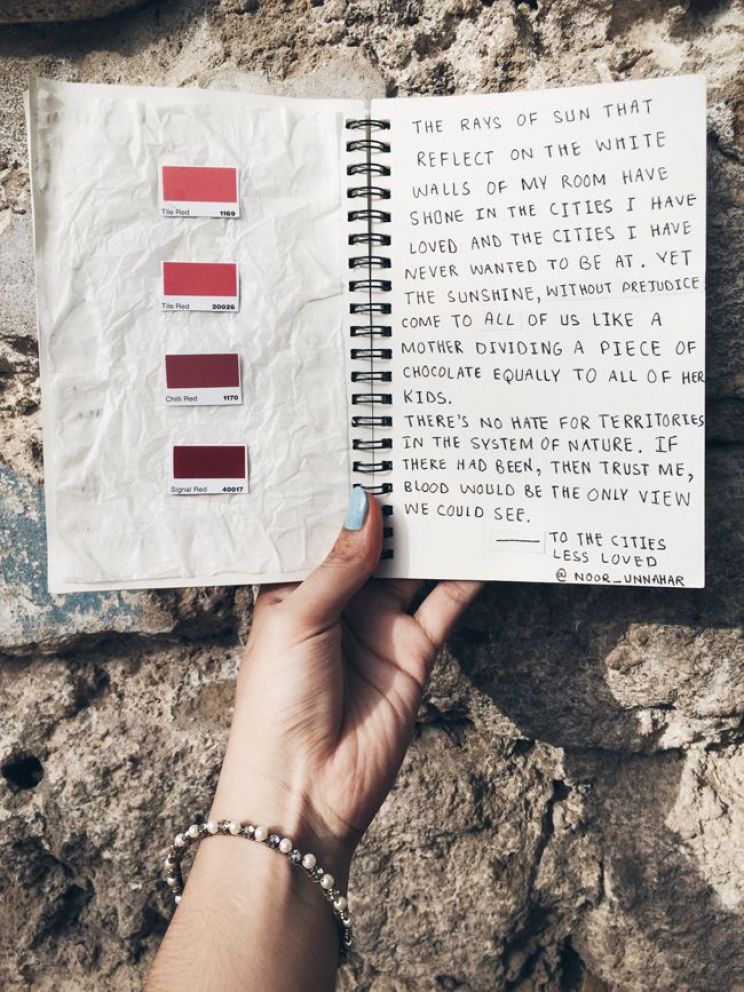 Tile Red 1169
Tile Red 20026
Chilli Red 1170
Signal Red 40017
THE RAYS OF SUN THAT
REFLECT ON THE WHITE
WALLS OF MY ROOM HAVE
SHONE IN THE CITIES I HAVE
LOVED AND THE CITIES I HAVE
NEVER WANTED TO BE AT. YET
THE SUNSHINE, WITHOUT PREJUDICE
COME TO ALL OF US LIKE A
MOTHER DIVIDING A PIECE OF
CHOCOLATE EQUALLY TO ALL OF HER
KIDS.
THERE'S NO HATE FOR TERRITORIES
IN THE SYSTEM OF NATURE. IF
THERE HAD BEEN, THEN TRUST ME,
BLOOD WOULD BE THE ONLY VIEW
WE COULD SEE.
— TO THE CITIES
LESS LOVED
@ NOOR_UNNAHAR